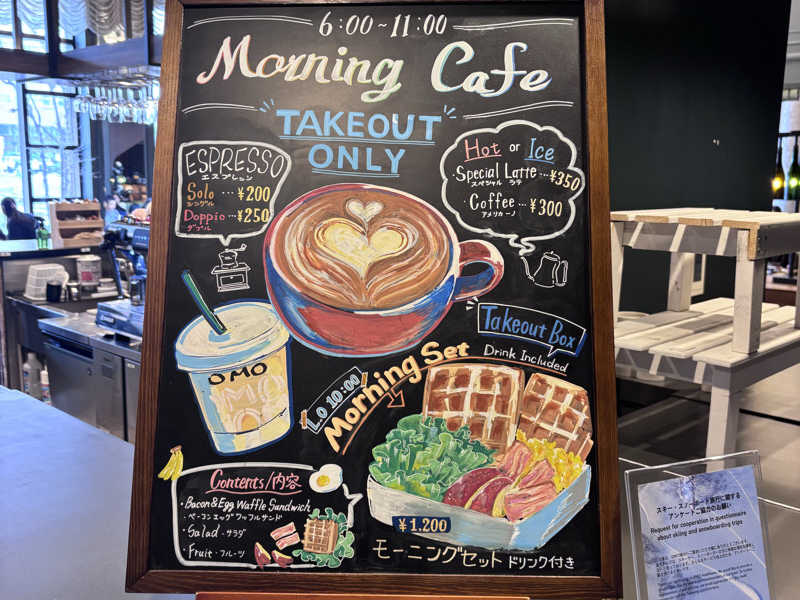 6:00~11:00
Morning Cafe
TAKEOUT
ONLY
ESPRESSO
エスプレッソ
Solo ... ¥200
シングル
Doppio ... ¥250
ダブル
Hot or Ice
・Special Latte ... ¥350
スペシャル ラテ
・Coffee ... ¥300
アメリカーノ
OMO
Takeout Box
Drink Included
L.O 10:00
Morning Set
Contents/内容
・Bacon & Egg Waffle Sandwich
・ベーコンエッグワッフルサンド
・Salad・サラダ
・Fruit・フルーツ
¥1.200
モーニングセット ドリンク付き
スキー・スノーボード旅行に関する
アンケートご協力のお願い
Request for cooperation in questionnaire
about skiing and snowboarding trips